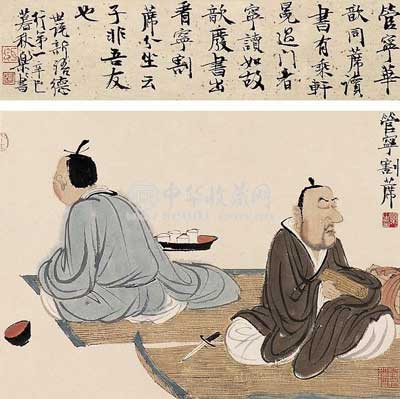 管寧華
歆同蓆讀
書有乘軒
冕過門者
寧讀如故
歆廢書出
看寧割
蓆分坐云
子非吾友
也
世說新語德
行第一辛巳
秋樂書
管寧割蓆
中华收藏网